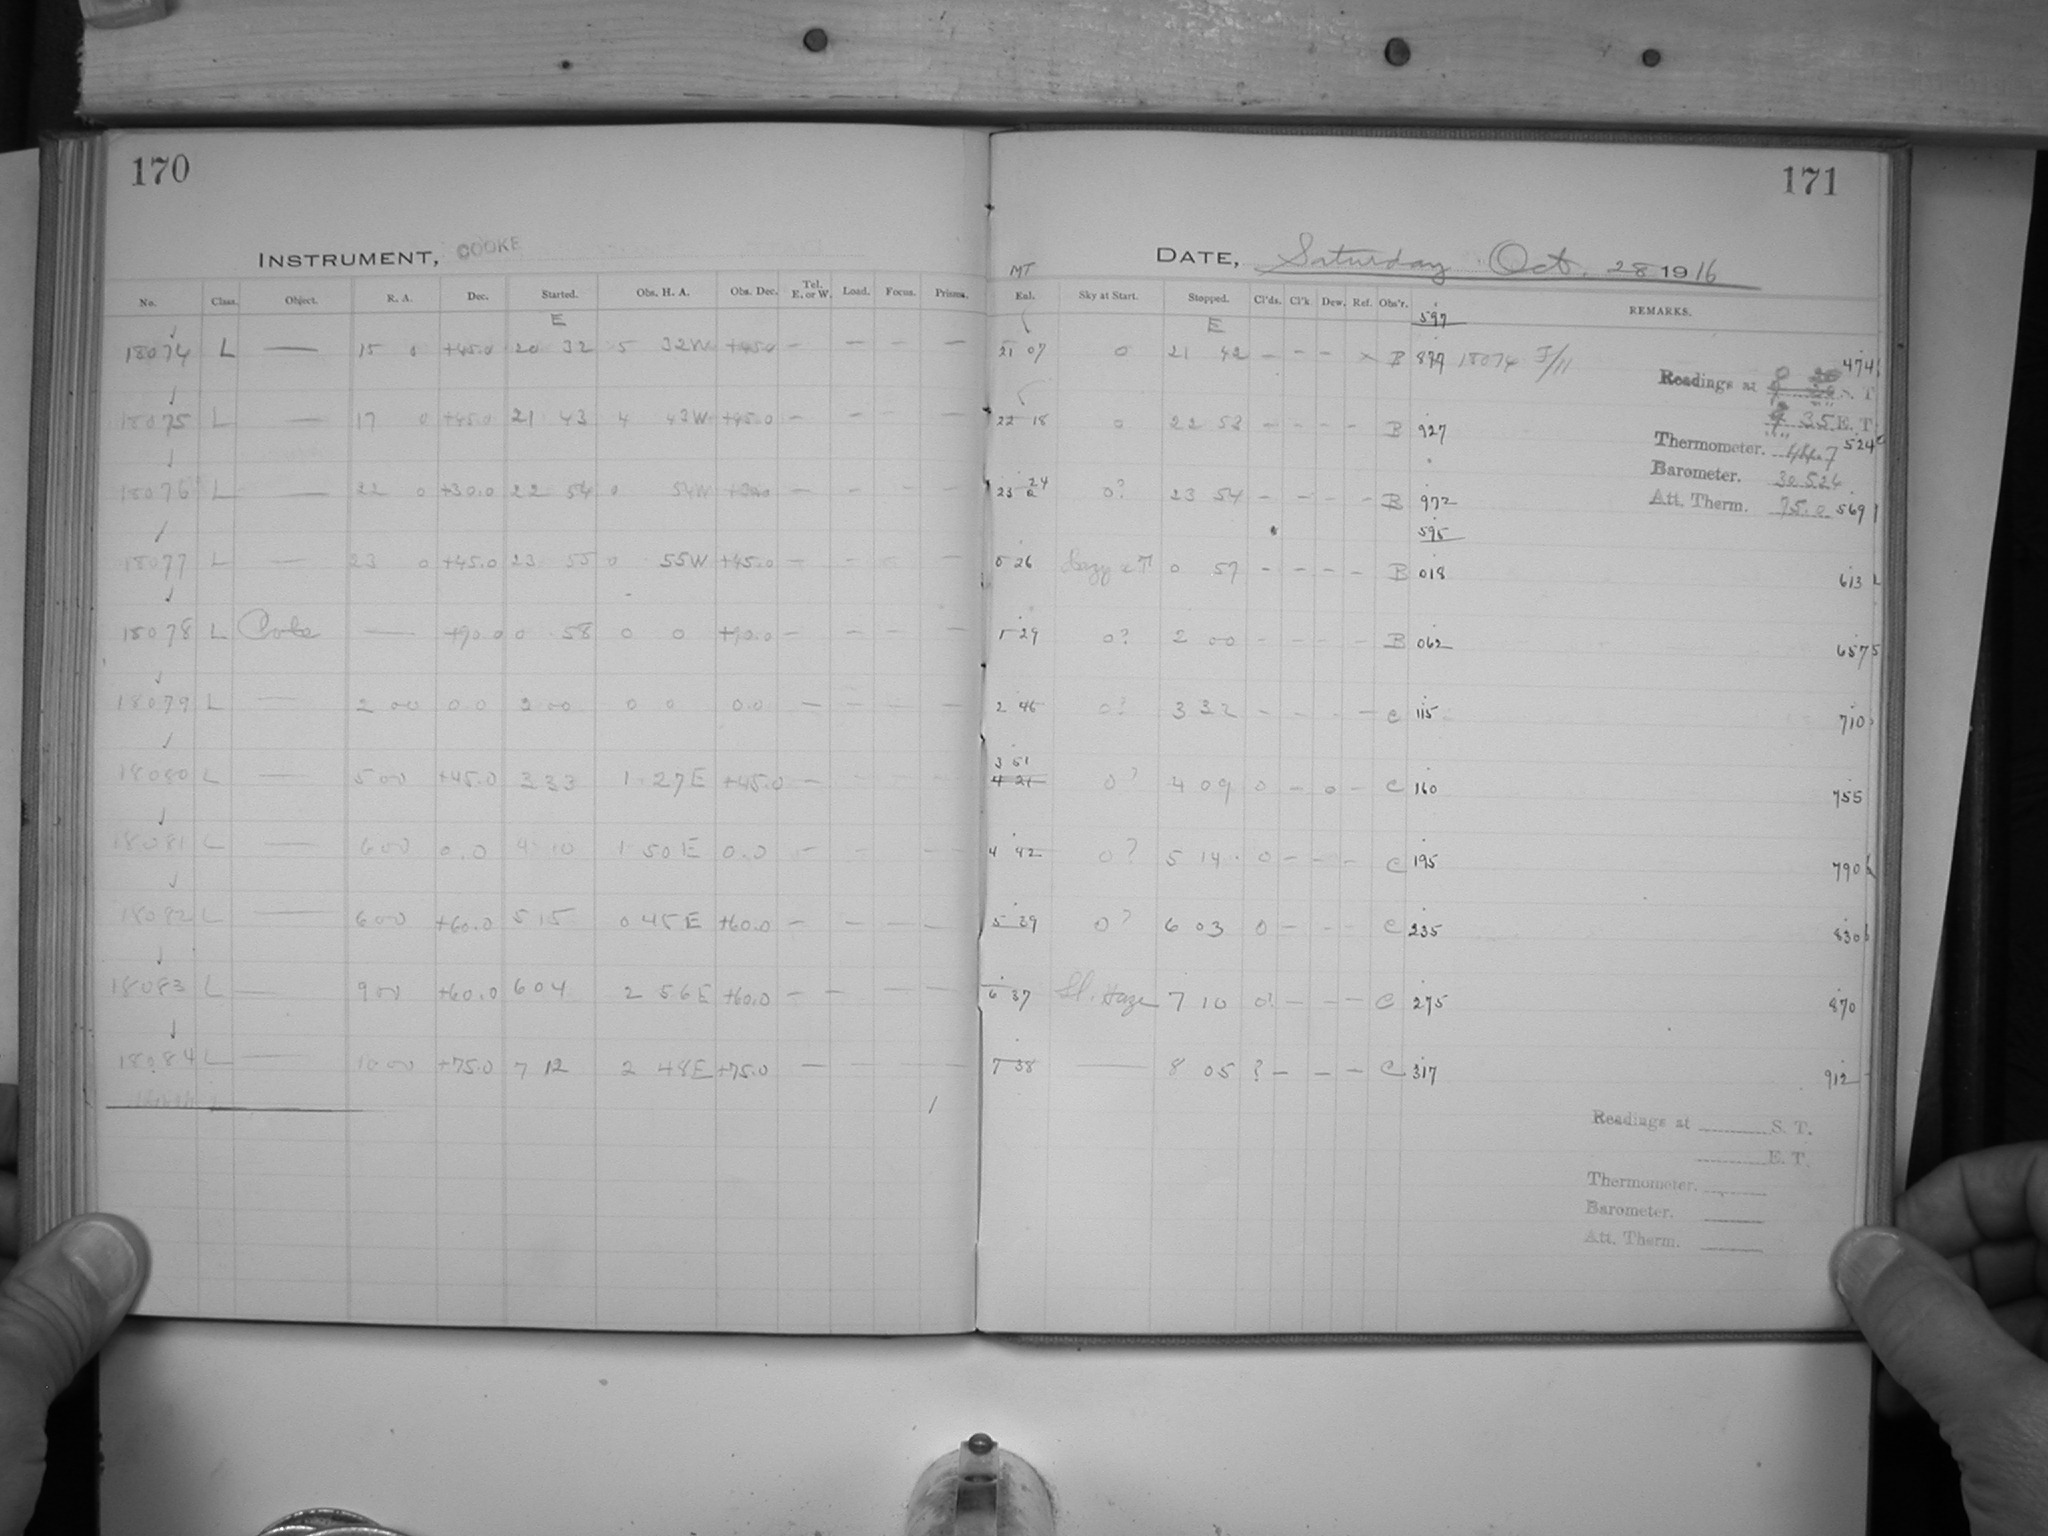 170
INSTRUMENT, COOKE
No. Class. Object. R. A. Dec. Started. Obs. H. A. Obs. Dec. Tel. E. or W. Load. Focus. Prisms.
E
18074 L — 15 0 +45.0 20 32 5 32W +45.0 — — — —
18075 L — 17 0 +45.0 21 43 4 43W +45.0 — — — —
18076 L — 22 0 +30.0 22 54 0 54W +30.0 — — — —
18077 L — 23 0 +45.0 23 55 0 55W +45.0 — — — —
18078 L Pole — +90.0 0 58 0 0 +90.0 — — — —
18079 L — 2 00 0.0 2 00 0 0 0.0 — — — —
18080 L — 5 00 +45.0 3 33 1 27E +45.0 — — — —
18081 L — 6 00 0.0 4 10 1 50E 0.0 — — — —
18082 L — 6 00 +60.0 5 15 0 45E +60.0 — — — —
18083 L — 9 00 +60.0 6 04 2 56E +60.0 — — — —
18084 L — 10 00 +75.0 7 12 2 48E +75.0 — — — —
171
DATE, Saturday Oct. 28 1916
MT
Eal. Sky at Start. Stopped. Cl'ds. Cl'k. Dew. Ref. Obs'r. REMARKS.
E 597
21 07 0 21 42 — — — x B 877 18074 F/11 474
Readings at S. T.
35 E. T.
22 18 0 22 53 — — — — B 927 524
Thermometer. 44.7
Barometer. 30.526
Att. Therm. 75.0
23 24 0? 23 54 — — — — B 972 569
595
0 26 Hazy 0 57 — — — — B 018 613
1 29 0? 2 00 — — — — B 062 657
2 46 0? 3 32 — — — — C 115 710
3 51
4 21 0? 4 09 0 — 0 — C 160 755
4 42 0? 5 14 0 — — — C 195 790
5 39 0? 6 03 0 — — — C 235 830
6 37 Sl. Haze 7 10 0? — — — C 275 870
7 38 — 8 05 ? — — — C 317 912
Readings at S. T.
E. T.
Thermometer.
Barometer.
Att. Therm.